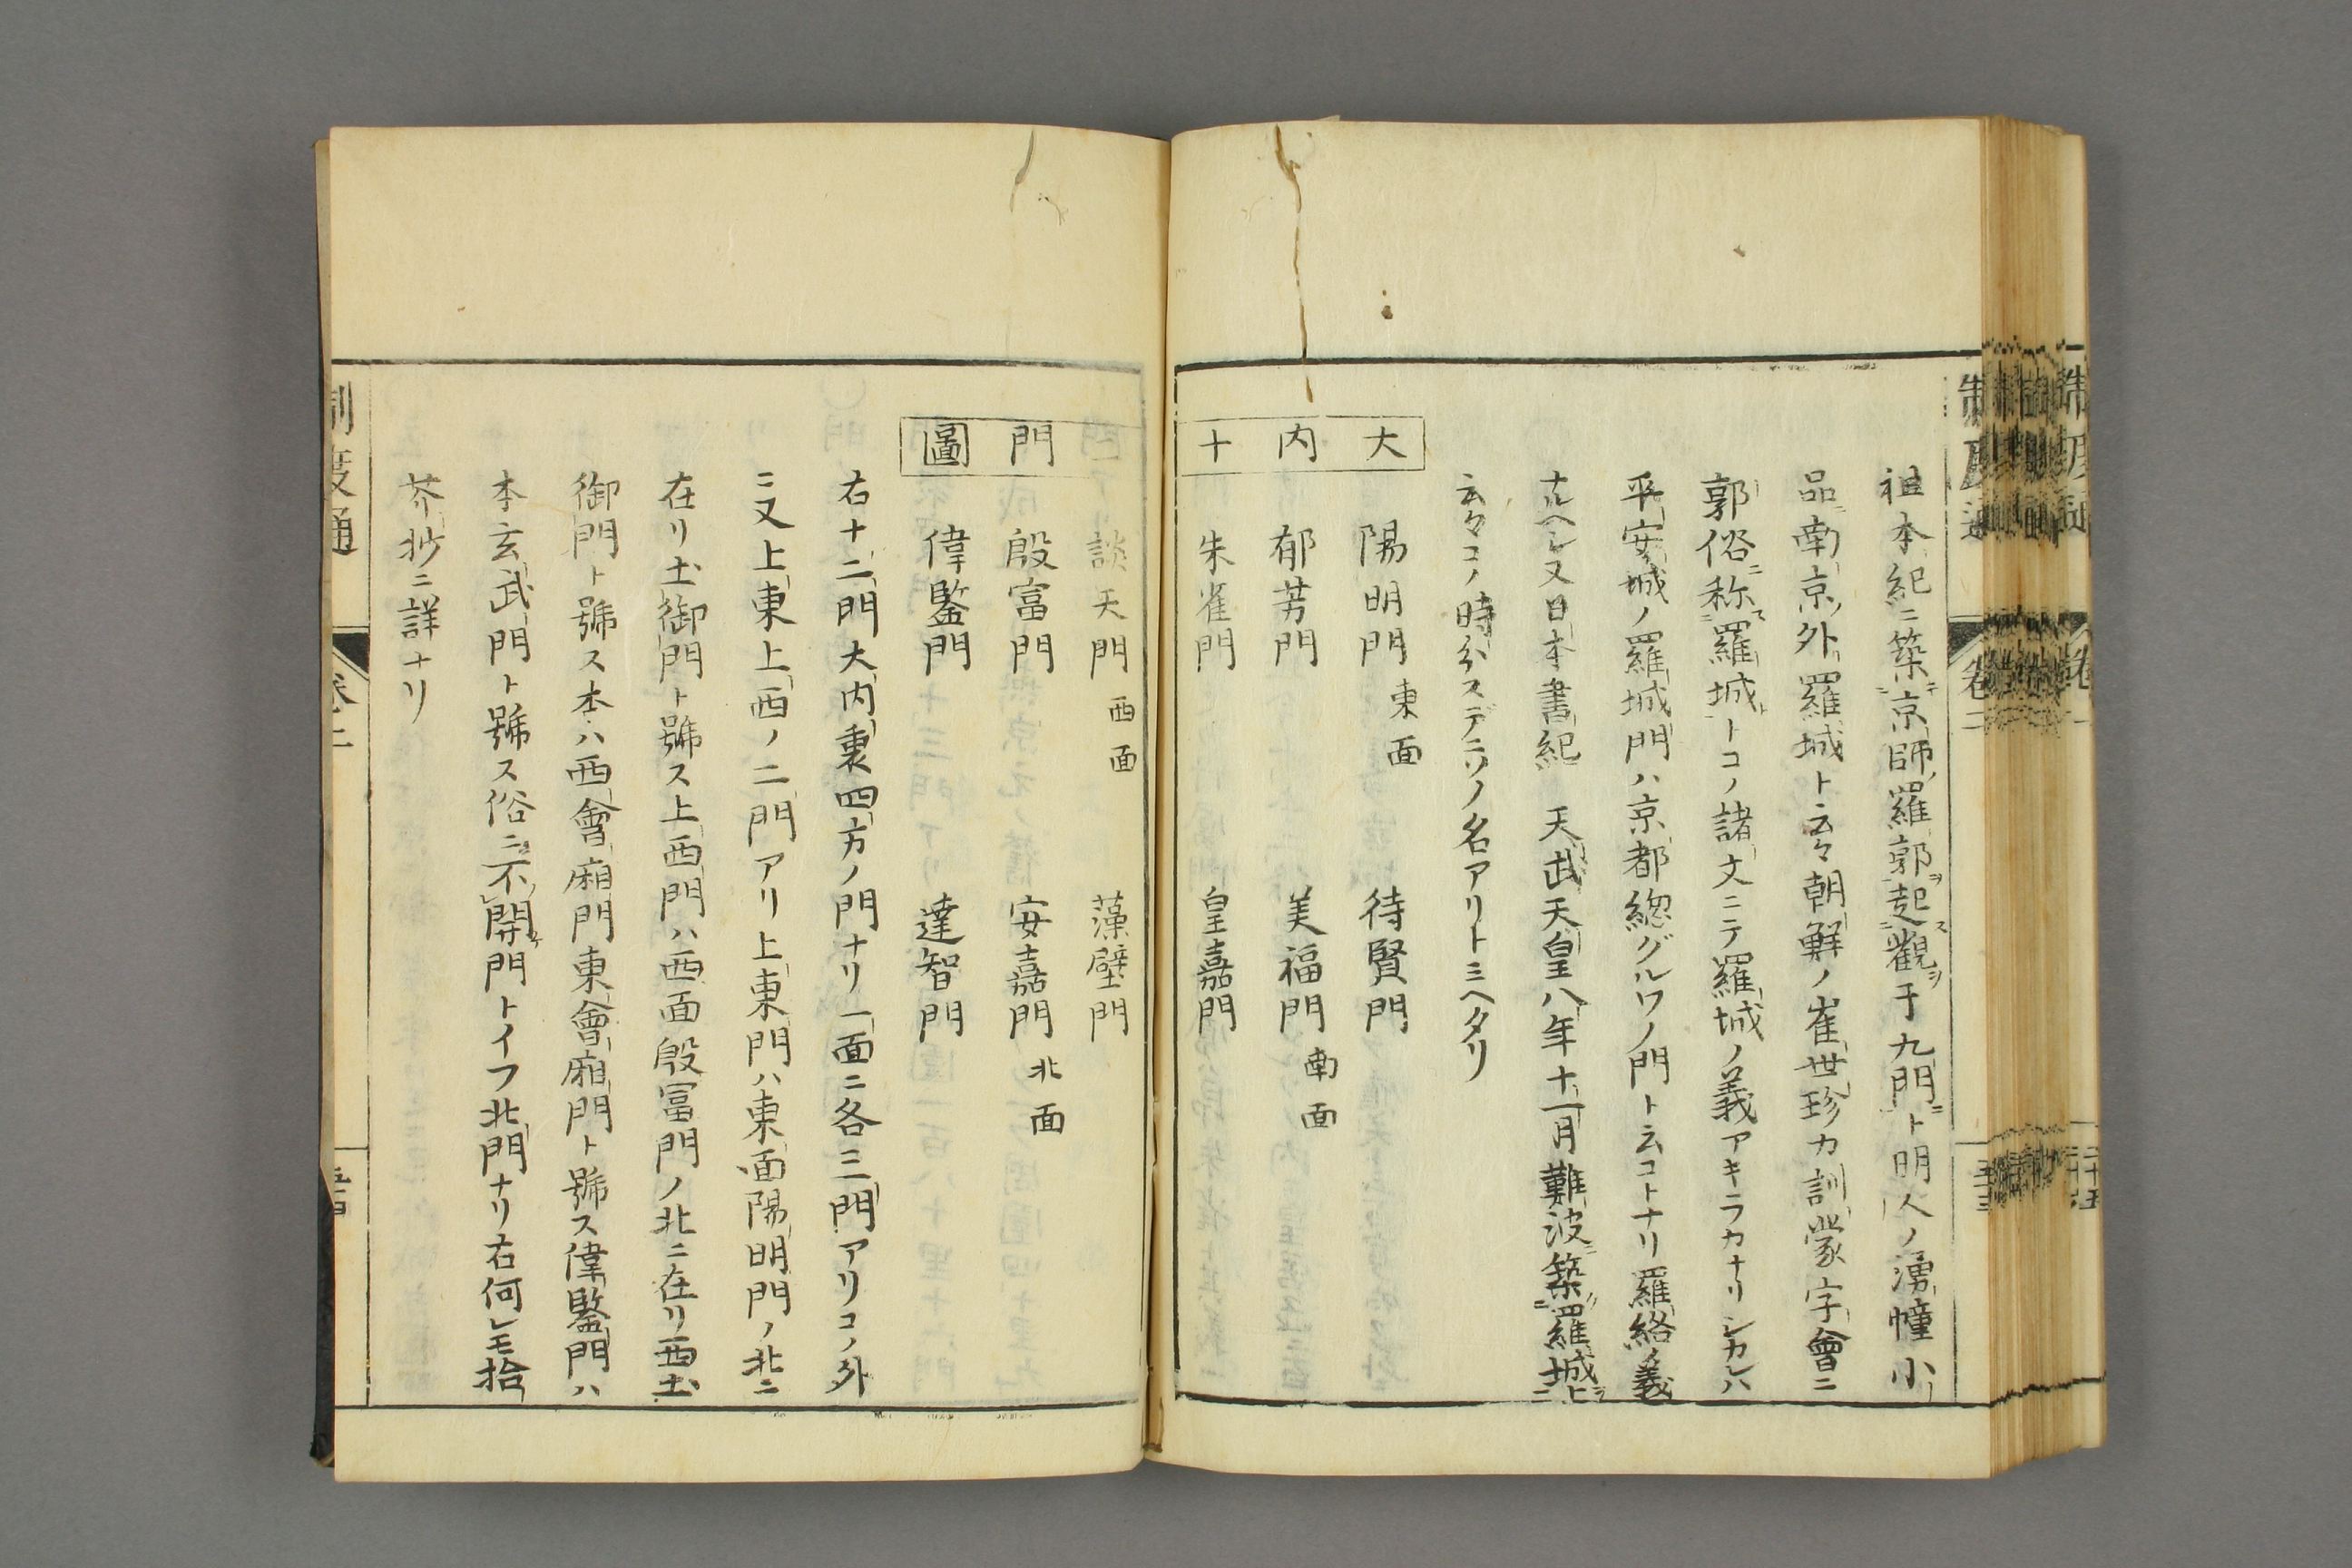 祖本紀ニ築京師羅郭起觀于九門ト明人ノ湧幢小
品南京外羅城ト云々朝鮮ノ崔世珍カ訓蒙字會ニ
郭俗称羅城トコノ諸文ニテ羅城ノ義アキラカナリシカレハ
平安城ノ羅城門ハ京都總グルワノ門ト云コトナリ羅絡ノ義
ナルヘシ又日本書紀 天武天皇八年十一月難波築羅城ト
云々コノ時分スデニソノ名アリトミヘタリ
大 陽明門東面 待賢門
内 郁芳門 美福門南面
十 朱雀門 皇嘉門
談天門西面 藻壁門
門 殷富門 安嘉門北面
圖 偉鑒門 達智門
右十二門大内裏四方ノ門ナリ一面ニ各三門アリコノ外
ニ又上東上西ノ二門アリ上東門ハ東面陽明門ノ北ニ
在リ土御門ト號ス上西門ハ西面殷富門ノ北ニ在リ西土
御門ト號ス本ハ西會廂門東會廂門ト號ス偉鑒門ハ
本玄武門ト號ス俗ニ不開門トイフ北門ナリ右何レモ拾
芥抄ニ詳ナリ
制度通 卷二